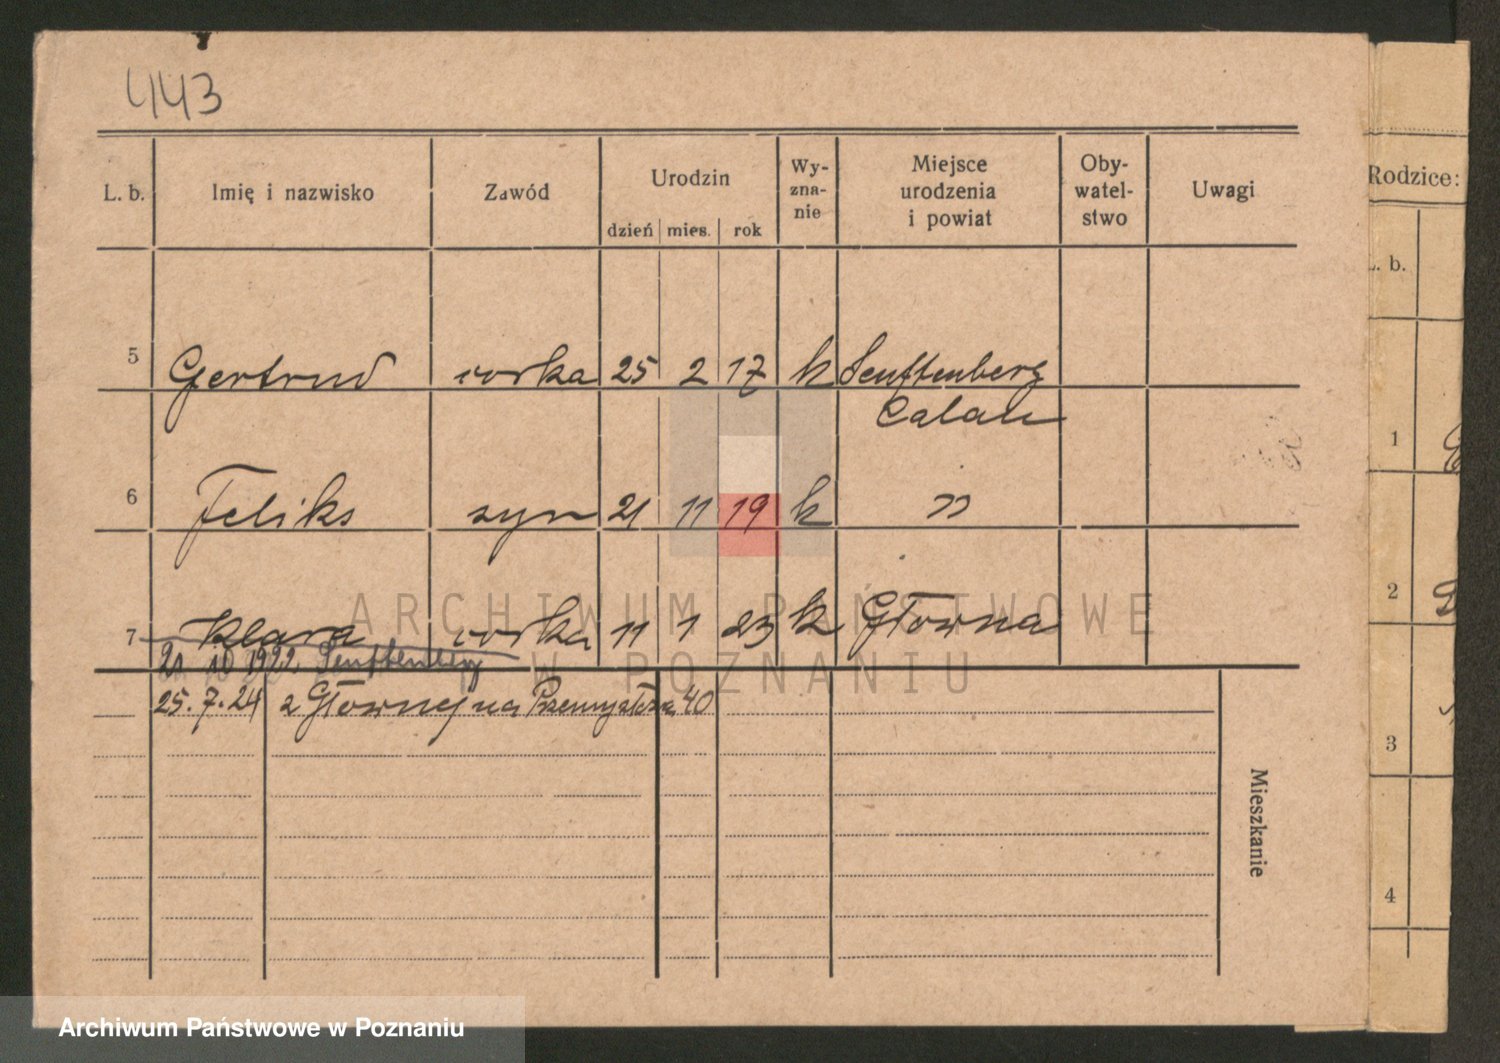 443
L. b. Imię i nazwisko Zawód Urodzin Wy-zna-nie Miejsce urodzenia i powiat Oby-watel-stwo Uwagi
dzień mies. rok
5 Gertrud córka 25 2 17 k Senftenberg
Calau
6 Feliks syn 21 11 19 k "
7 Klara córka 11 1 23 k Główna
21 10 1922 Senftenberg
25.7.24 z Głównej na Przemysłową 40
Mieszkanie
Rodzice:
L. b.
1
2
3
4
ARCHIWUM PAŃSTWOWE
W POZNANIU
Archiwum Państwowe w Poznaniu